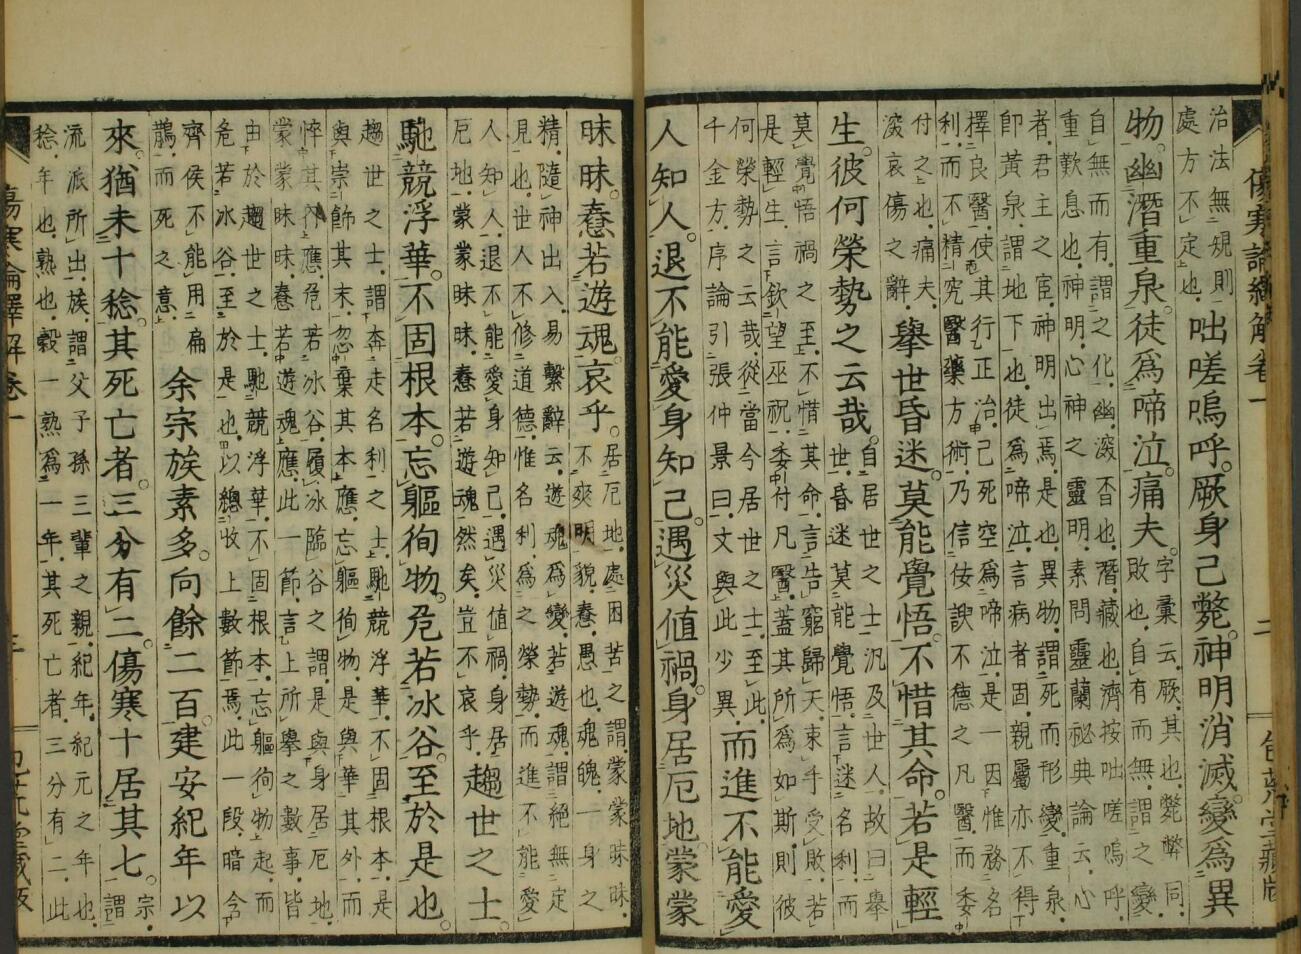 傷寒論繹解卷一
二
治法無規則
處方不定也咄嗟嗚呼厥身已斃神明消滅變爲異
物幽潛重泉徒爲啼泣痛夫字彙云厥其也斃弊同
敗也自有而無謂之變
自無而有謂之化幽深杳也潛藏也濟按咄嗟嗚呼
重歎息也神明心神之靈明素問靈蘭秘典論云心
者君主之官神明出焉是也異物謂死而形變重泉
卽黃泉謂地下也徒爲啼泣言病者固親屬亦不得
擇良醫使其行正治己死空爲啼泣是一因惟務名
利而不精究醫藥方術乃信佞諛不德之凡醫而委
付之也痛夫
深哀傷之辭擧世昏迷莫能覺悟不惜其命若是輕
生彼何榮勢之云哉自居世之士汎及世人故曰擧
世昏迷莫能覺悟言迷名利而
莫覺悟禍之至不惜其命言告窮歸天束手受敗若
是輕生言欽望巫祝委付凡醫蓋其所爲如斯則彼
何榮勢之云哉從當今居世之士至此
千金方序論引張仲景曰文與此少異而進不能愛
人知人退不能愛身知己遇災値禍身居厄地蒙蒙
昧昧惷若遊魂哀乎居厄地處困苦之謂蒙蒙昧昧
不爽明貌惷愚也魂魄一身之
精隨神出入易繫辭云遊魂爲變若遊魂謂絕無定
見也世人不修道德惟名利爲之榮勢而進不能愛
人知人退不能愛身知己遇災値禍身居
厄地蒙蒙昧昧惷若遊魂然矣豈不哀乎趨世之士
馳競浮華不固根本忘軀徇物危若冰谷至於是也
趨世之士謂奔走名利之士馳競浮華不固根本是
與崇飾其末忽棄其本應忘軀徇物是與華其外而
悴其內應危若冰谷履冰臨谷之謂是與身居厄地
蒙蒙昧昧惷若遊魂應此一節言上所擧之數事皆
由於趨世之士馳競浮華不固根本忘軀徇物起而
危若冰谷至於是也以總收上數節焉此一段暗含
齊侯不能用扁
鵲而死之意余宗族素多向餘二百建安紀年以
來猶未十稔其死亡者三分有二傷寒十居其七宗謂
流派所出族謂父子孫三輩之親紀年紀元之年也
稔年也熟也穀一熟爲一年其死亡者三分有二此
傷寒論繹解卷一